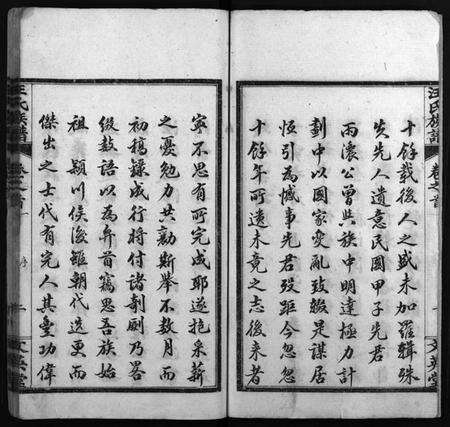 汪氏族譜
卷之首
十餘載後人之盛未加羅輯殊
失先人遺意民國甲子先君
雨濃公曾與族中明達極力計
劃中以國家變亂致輟是謀居
恒引為憾事先君歿距今忽忽
十餘年所遺未竟之志後來者
寧不思有所完成耶遂抱采薪
之憂勉力共勷斯舉不數月而
初稿錄成行將付諸剞劂乃畧
綴數語以為弁首竊思吾族始
祖 潁川侯後雖朝代迭更而
傑出之士代有完人其豐功偉
汪氏族譜
卷之首
序
一
文英堂